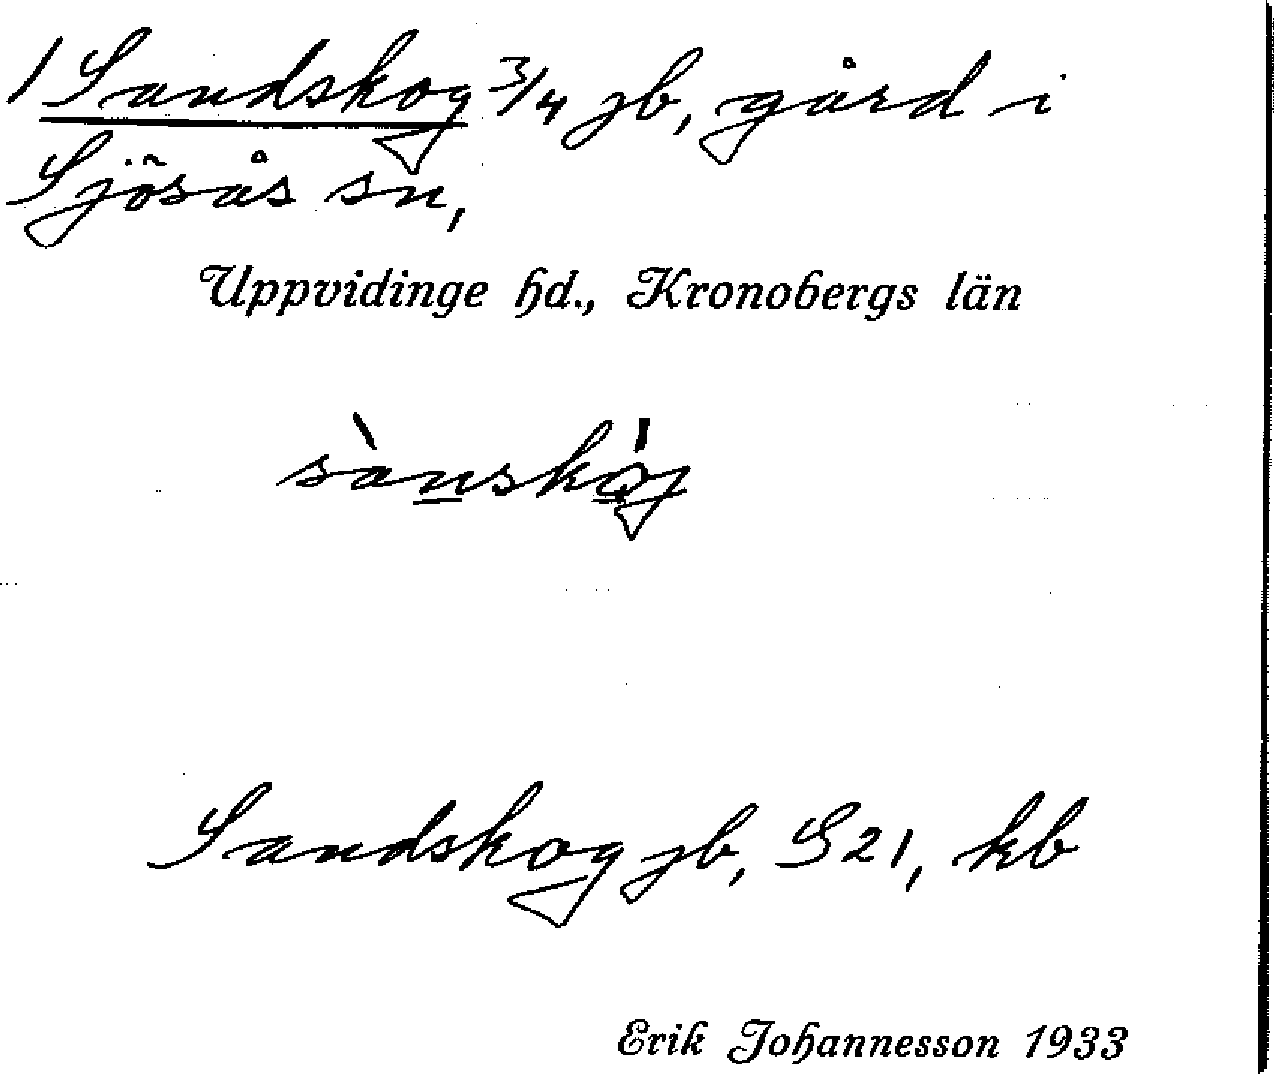 / Sandskog 3/4 jb, gård i
Sjösås sn,
Uppvidinge hd., Kronobergs län
sànskog
Sandskog jb, S21, kb
Erik Johannesson 1933